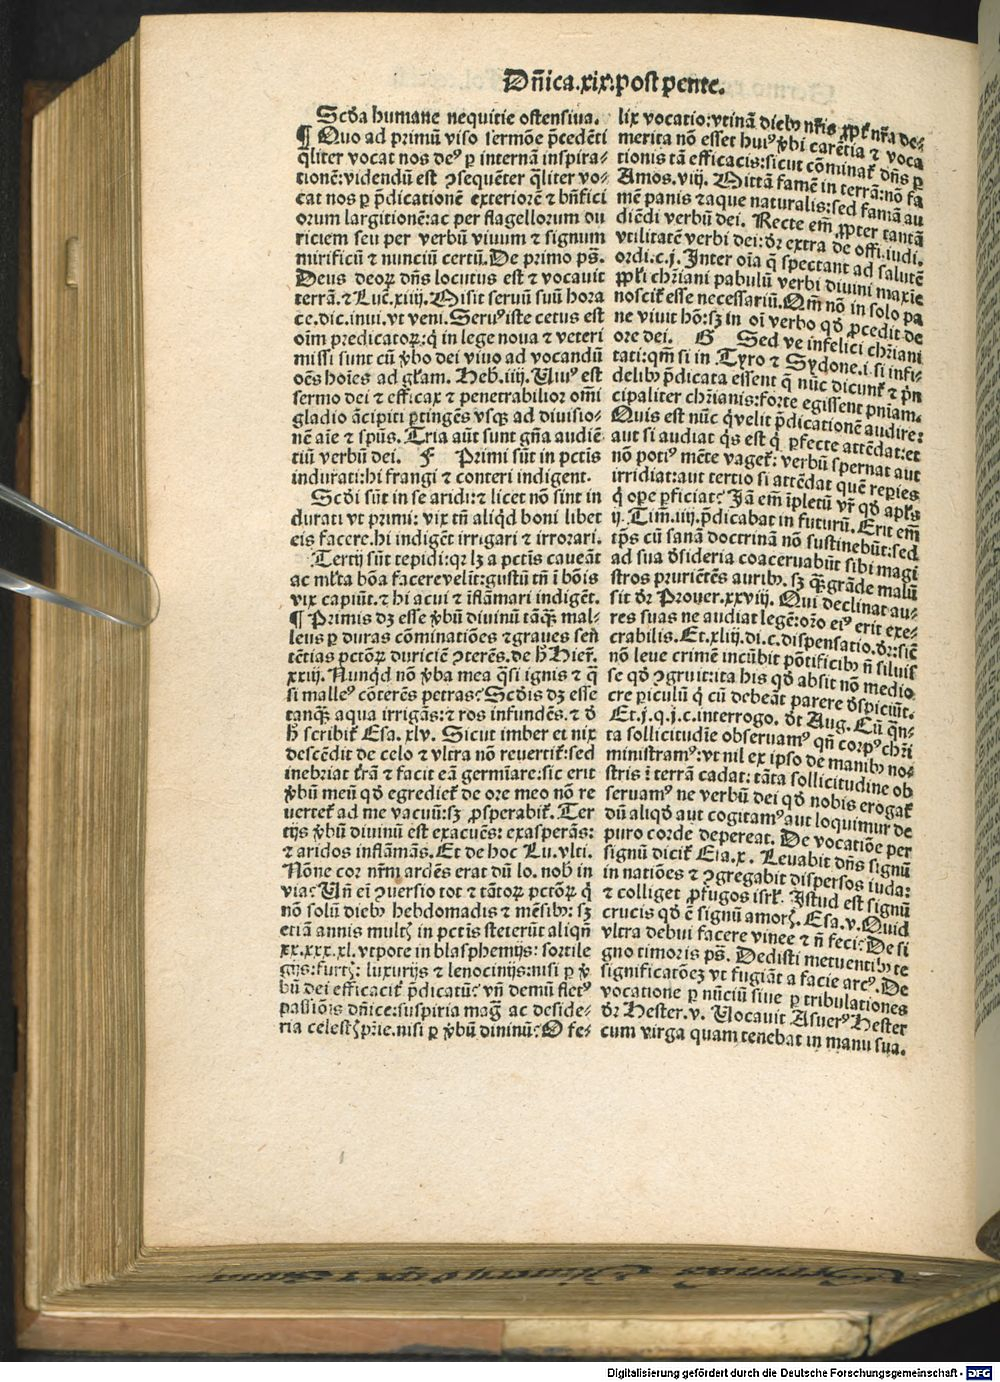 Dñica.xix.post pente.
Scďa humane nequitie ostensiua.
¶ Quo ad primũ viso sermõe p̃cedẽti
qľiter vocat nos deꝰ ꝑ internã inspira-
tionẽ:videndũ est ꝯsequẽter qľiter vo-
cat nos ꝑ p̃dicationẽ exteriorẽ ⁊ bñfici
orum largitionẽ:ac per flagellorum du
riciem seu per verbũ viuum ⁊ signum
mirificũ ⁊ nunciũ certũ. De primo pš.
Deus deoꝝ dñs locutus est ⁊ vocauit
terrã. ⁊ Luc̃.xiiij. Misit seruũ suũ hora
ce.dic.inui.vt veni. Seruꝰ iste cetus est
oĩm predicatoꝝ:q̇ in lege noua ⁊ veteri
missi sunt cũ ꝟbo dei viuo ad vocandũ
oẽs hoĩes ad gr̃am. Heb̃.iiij. Uiuꝰ est
sermo dei ⁊ efficax ⁊ penetrabilior om̃i
gladio ãcipiti ꝑtingẽs vsqꝫ ad diuisio-
nẽ aĩe ⁊ sp̃us. Tria aũt sunt gñа audiẽ
tiũ verbũ dei. F Primi sũt in pctĩs
indurati:hi frangi ⁊ conteri indigent.
Scďi sũt in se aridi:⁊ licet nõ sint in
durati vt primi: vix tñ aliqḋ boni libet
eis facere.hi indigẽt irrigari ⁊ irrorari.
Tertij sũt tepidi:qꝛ lꝫ a pctĩs caueãt
ac ml̃ta bõa facere velĩt:gustũ tñ ĩ bõis
vix capiũt.⁊ hi acui ⁊ ĩflãmari indigẽt.
¶ Primis dꝫ esse ꝟbũ diuinũ tãqꝫ mal-
leus ꝑ duras cõminatiões ⁊ graues sen̄
tẽtias pctõꝝ duriciẽ ꝯterẽs.de h̊ Hier̃.
xxiij. Nunqḋ nõ ꝟba mea q̃si ignis ⁊ q̃
si malleꝰ cõterẽs petras? Scďis dꝫ esse
tanqꝫ aqua irrigãs:⁊ ros infundẽs. ⁊ ď
h̊ scribiť Esa. xlv. Sicut imber et nix
descẽdit de celo ⁊ vltra nõ reuertiť:sed
inebriat tr̃ã ⁊ facit eã germĩare:sic erit
ꝟbũ meũ qď egredieť de ore meo nõ re
uerteť ad me vacuũ:sꝫ ꝓsperabiť. Ter
tijs ꝟbũ diuinũ est exacuẽs: exasperãs:
⁊ aridos inflãmãs. Et de hoc Lu.vlti.
Nõne cor nr̃m ardẽs erat dũ lo. nob̃ in
via? Uñ eĩ ꝯuersio tot ⁊ tãtoꝝ pctõꝝ q̇
nõ solũ diebꝰ hebdomadis ⁊ mẽsibꝰ: sꝫ
etiã annis multꝭ in pctĩs steterũt aliqñ
xx.xxx.xl. vtpote in blasphemijs: sortile
gijs:furtꝭ: luxurijs ⁊ lenocinijs:nisi ꝑ ꝟ
bũ dei efficaciť p̃dicatũ? vñ demũ fletꝰ
passiõis dñice:suspiria mag̃ ac deside-
ria celestꝭ pr̃ie.nisi ꝑ ꝟbũ diuinũ? O fe-
lix vocatio:vtinã diebꝰ nr̃is ꝓpť nr̃a de-
merita nõ esset huiꝰ ꝟbi carẽtia ⁊ voca
tionis tã efficacis:sicut cõminať dñs ꝑ
Amos.viij. Mittã famẽ in terrã:nõ fa
mẽ panis ⁊ aque naturalis:sed famã au
diẽdi verbũ dei. Recte em̃ ꝓpter tantã
vtilitatẽ verbi dei:ďr extra de offi.iudi.
ordi.c.j. Inter oĩa q̃ spectant ad salutẽ
ppľi chr̃iani pabulũ verbi diuini maxĩe
nosciť esse necessariũ. Qm̃ nõ in solo pa
ne viuit hõ:sꝫ in oĩ verbo qď ꝓcedit de
ore dei. G Sed ve infelici chr̃iani
tati:qm̃ si in Tyro ⁊ Sydone.i.si infi-
delibꝰ p̃dicata essent q̃ nũc dicunť ⁊ p̃n
cipaliter chr̃ianis:forte egissent pñiam.
Quis est nũc q̇ velit p̃dicationẽ audire:
aut si audiat q̇s est q̇ ꝑfecte attẽdat:et
nõ potiꝰ mẽte vageť: verbũ spernat aut
irridiat:aut tertio si attẽdat quẽ reꝑies
q̇ oꝑe ꝑficiat? Jã em̃ ĩpletũ vr̃ qď apľs
ij. Tim̃.iiij.p̃dicabat in futurũ. Erit em̃
tp̃s cũ sanã doctrinã nõ sustinebũt:sed
ad sua ďsideria coaceruabũt sibi magi
stros pruriẽtẽs auribꝰ. sꝫ qꝫ grãde malũ
sit ďr Prouer.xxviij. Qui declinat au-
res suas ne audiat legẽ:orõ eiꝰ erit exe-
crabilis. Et.xliij.di.c.dispensatio.ďr:sic̃
nõ leue crimẽ incũbit põtificibꝰ ñ siluis
se qď ꝯgruit:ita his qď absit nõ medio
cre ꝑiculũ q̇ cũ debeãt parere ďspiciũt.
Et.j.q.j.c.interrogo. ďt Aug. Cũ q̃n-
ta sollicitudĩe obseruamꝰ qñ corpꝰ chr̃i
ministramꝰ:vt nil ex ipso de manibꝰ no-
stris ĩ terrã cadat: tãta sollicitudine ob
seruamꝰ ne verbũ dei qď nobis erogať
dũ aliqď aut cogitamꝰ aut loquimur de
puro corde depereat. De vocatiõe per
signũ diciť Eia.x. Leuabit dñs signũ
in natiões ⁊ ꝯgregabit dispersos iuda:
⁊ colliget ꝓfugos isrľ. Istud est signũ
crucis qď ẽ signũ amorꝭ. Esa.v. Quid
vltra debui facere vinee ⁊ ñ feci? De si
gno timoris pš. Dedisti metuentibꝰ te
significatõeꝫ vt fugiãt a facie arcꝰ. De
vocatione ꝑ nũciũ siue ꝑ tribulationes
ďr Hester.v. Uocauit Asuerꝰ Hester
cum virga quam tenebat in manu sua.
Digitalisierung gefördert durch die Deutsche Forschungsgemeinschaft - DFG